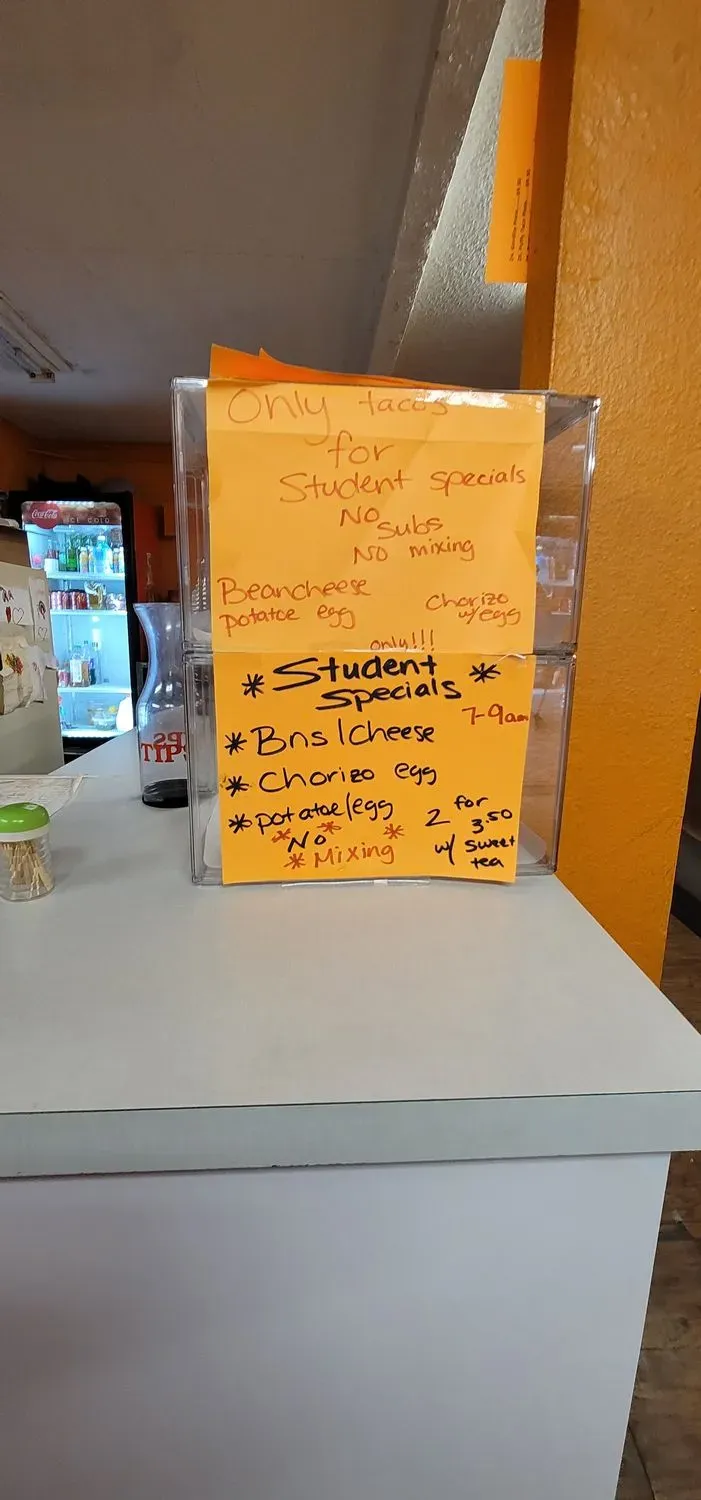 Only tacos
for
Student specials
No subs
No mixing
Beancheese
potatoe egg
Chorizo
w/egg
only!!!
* Student *
Specials
7-9am
* Bns/Cheese
* Chorizo egg
* potatoe/egg
2 for
3.50
w/ sweet
tea
* No * *
* Mixing
Coca-Cola
ICE COLD
TIPS